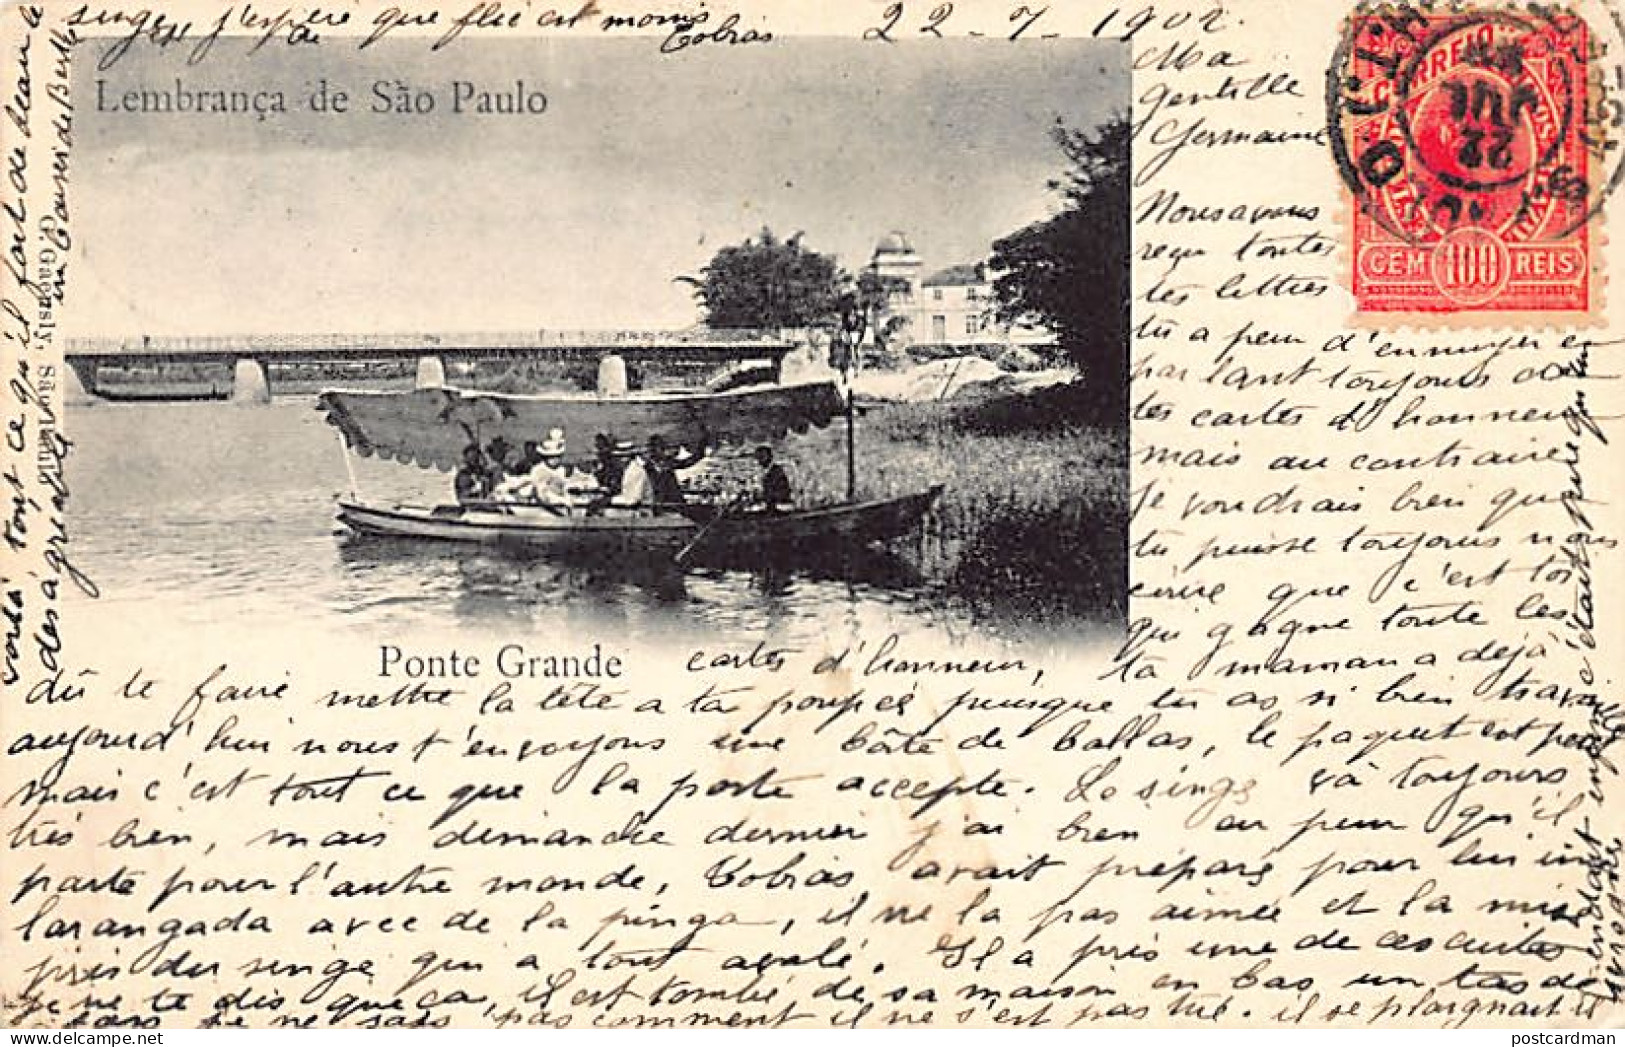 22-7-1902.
Lembrança de São Paulo
Ponte Grande
G. Gaensly, São Paulo
CORREIO
CEM 100 REIS
22 JUL
Ma
gentille
Germaine
Nous avons
reçu toutes
tes lettres
tu a peur d'ennuyer en
parlant toujours de
tes cartes d'honneur
mais au contraire
je voudrais bien que
tu puisse toujours nous
écrire que c'est toi
qui gagne toute les
cartes d'honneur, ta maman a déjà
dû te faire mettre la tête a ta poupée puisque tu as si bien travaillé
aujourd'hui nous t'envoyons une boîte de ballas, le paquet est petit
mais c'est tout ce que la poste accepte. Le singe va toujours
très bien, mais dimanche dernier j'ai bien eu peur qu'il
parte pour l'autre monde, Tobias avait préparé pour lui un
larangada avec de la pinga, il ne la pas aimée et la mise
près du singe qui a tout avalé. Il a pris une de ces cuites
je ne te dis que ça, il est tombé de sa maison en bas un tas de
fois je ne sais pas comment il ne s'est pas tué. il se plaignait et
pendant
c'était
voilà tout ce qu'il fait de beau le
singe, j'espère que fleé est moins
désagréable
Tobias
postcardman